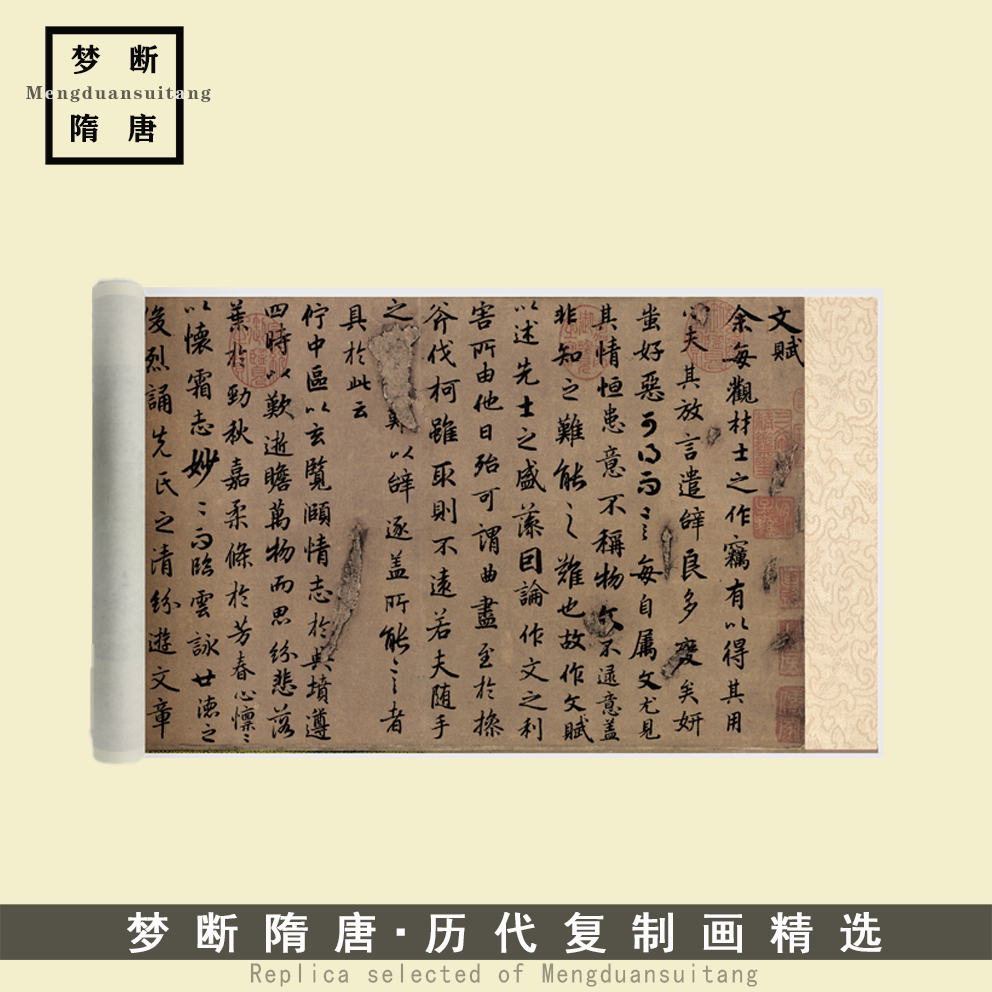 梦 断
Mengduansuitang
隋 唐
文賦
余每觀材士之作竊有以得其用
心夫其放言遣辝良多變矣妍
蚩好惡可得而言每自属文尤見
其情恒患意不稱物文不逮意盖
非知之難能之難也故作文賦
以述先士之盛藻因論作文之利
害所由他日殆可謂曲盡至於操
斧伐柯雖取則不遠若夫随手
之難以辝逐盖所能言者
具於此云
佇中區以玄覧頤情志於典墳遵
四時以歎逝瞻萬物而思紛悲落
葉於勁秋嘉柔條於芳春心懍々
以懷霜志妙々而臨雲詠世徳之
俊烈誦先民之清紛遊文章
梦断隋唐·历代复制画精选
Replica selected of Mengduansuitang